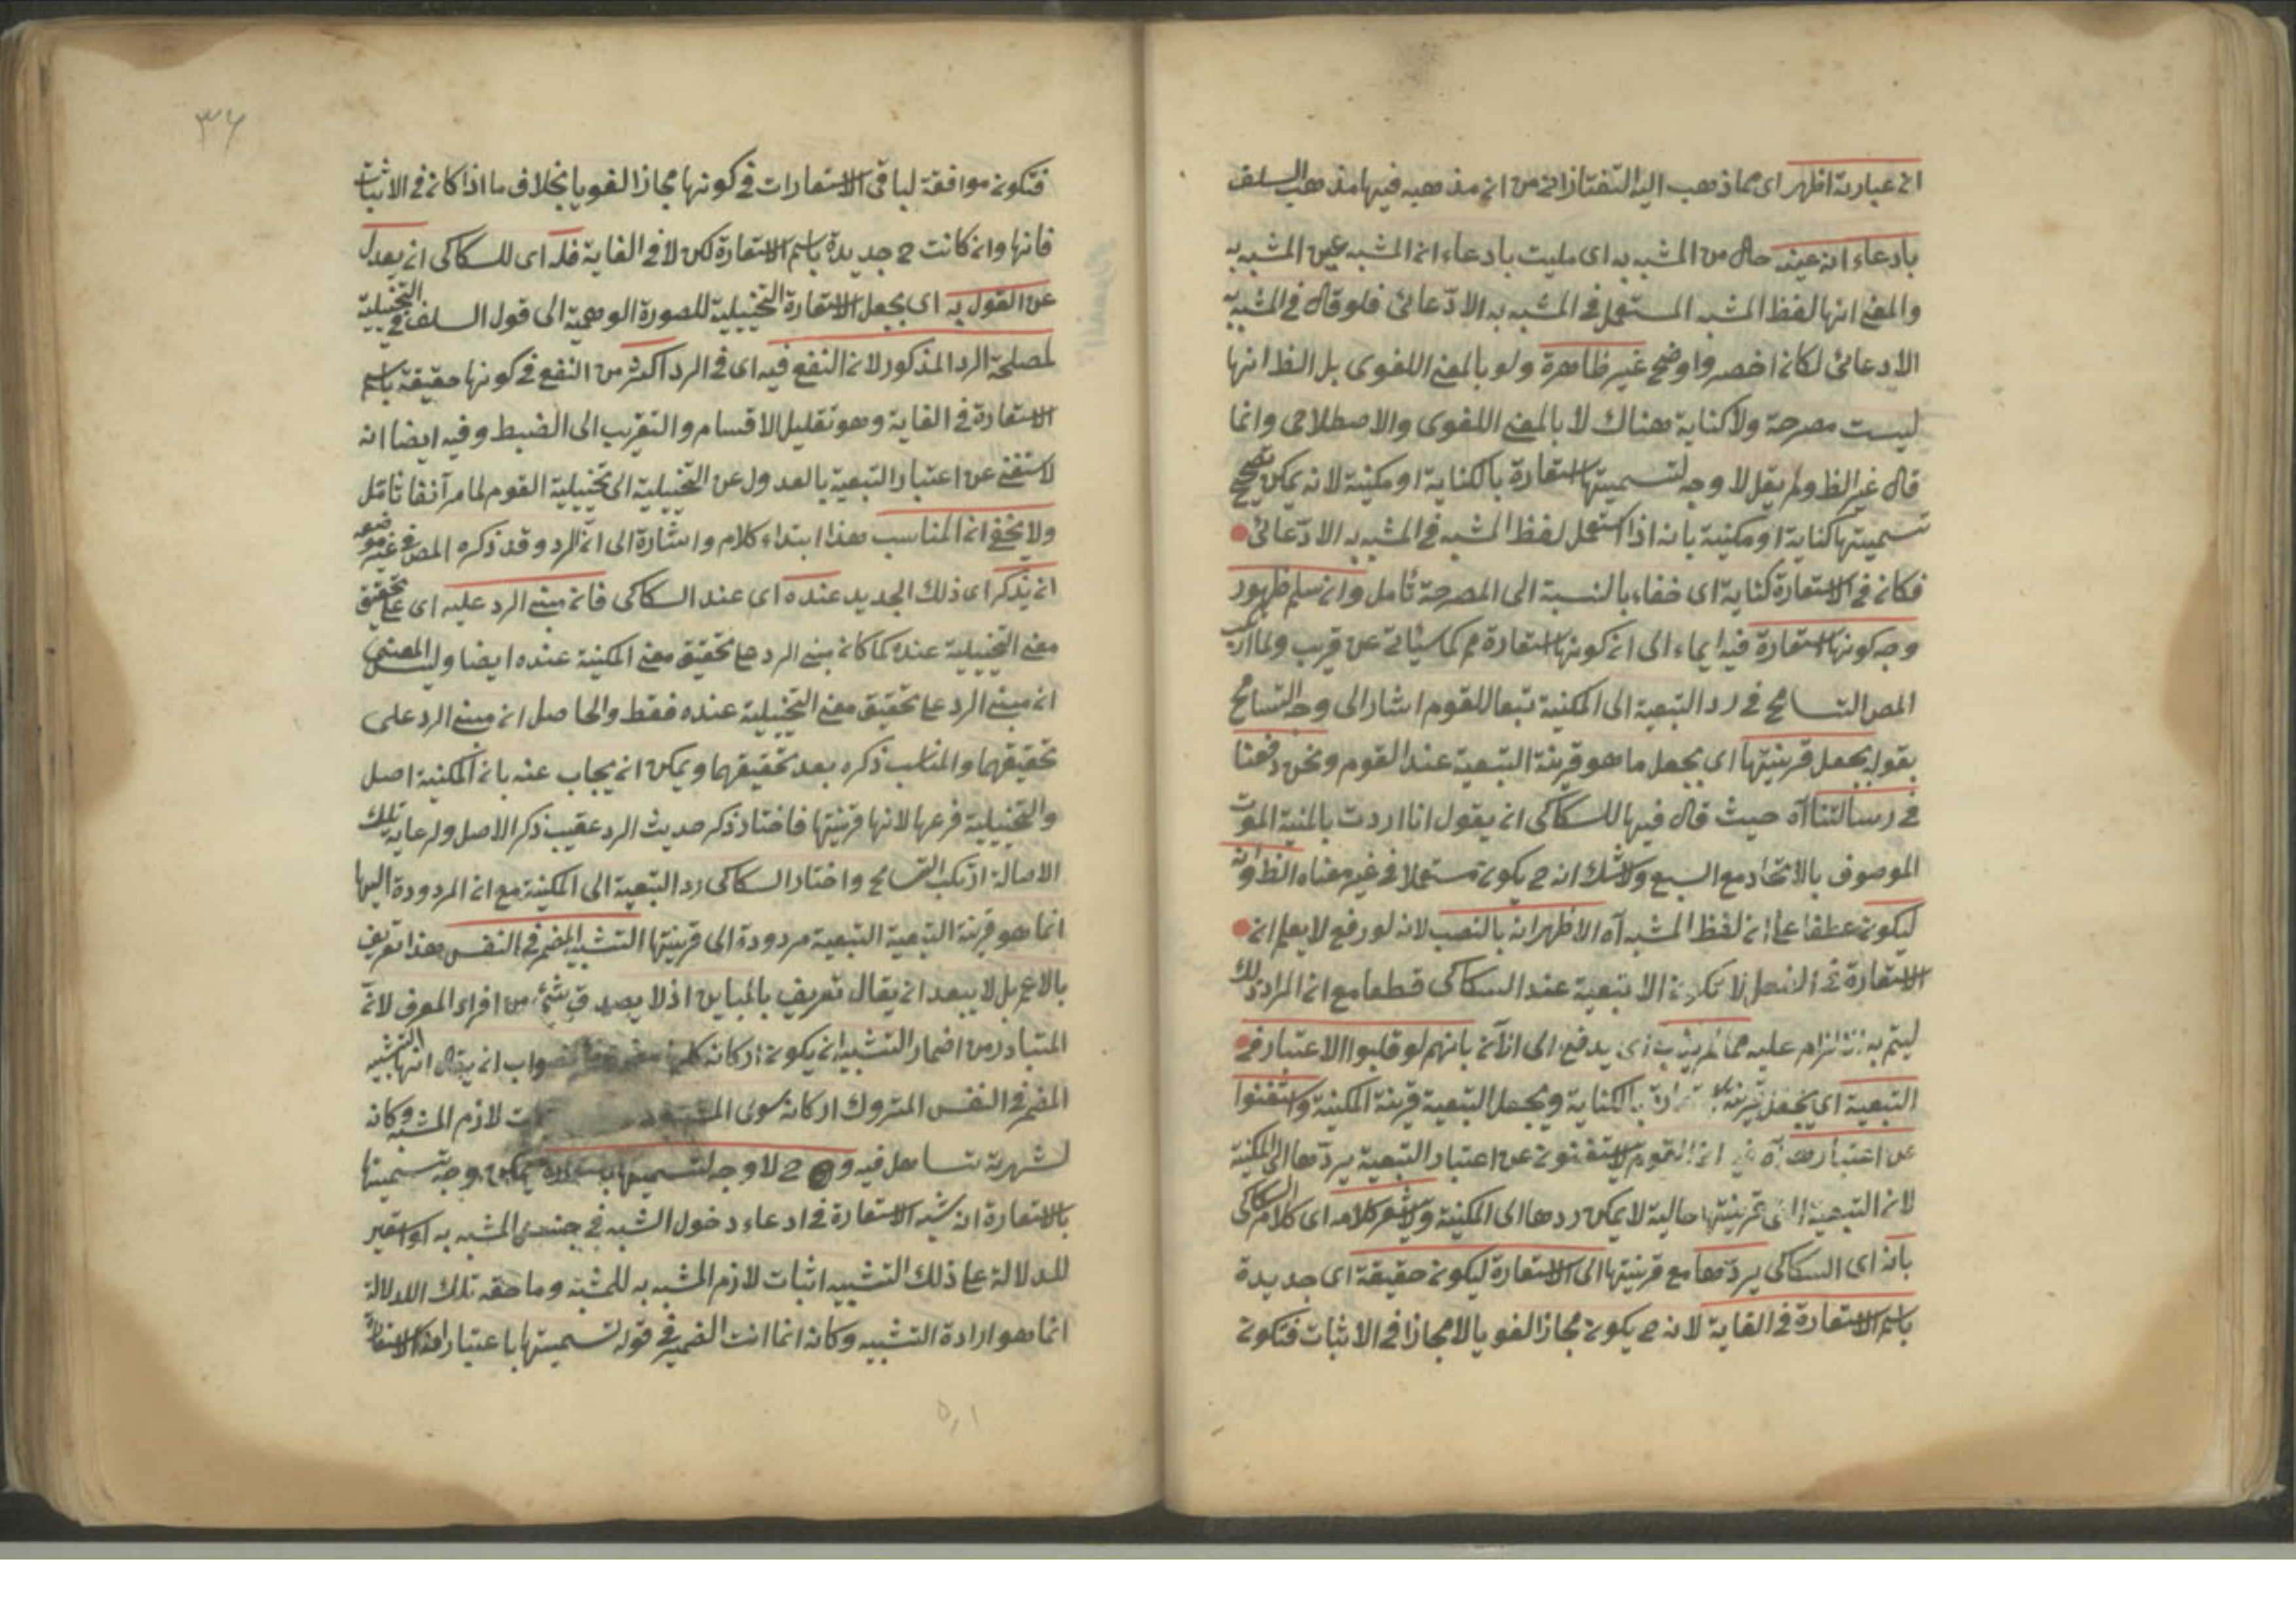 ان عبارته اظهر اى مما ذهب اليه التفتازانى من ان مذهبه فيها مذهب السلف
بادعاء انه عينه حال من المشبه به اى ملبت بادعاء ان المشبه عين المشبه به
والمعنى انها لفظ المشبه المستعمل فى المشبه به الادّعائى فلو قال فى المشبه به
الادعائى لكان اخصر واوضح غير ظاهرة ولو بالمعنى اللغوى بل الظ انها
ليست مصرحة ولا كناية هناك لا بالمعنى اللغوى والاصطلاحى وانما
قال غير الظ ولم يقل لا وجه لتسميتها استعارة بالكناية او مكنية لانه يمكن تصحيح
تسميتها كناية او مكنية بانه اذا استعمل لفظ المشبه فى المشبه به الادّعائى
فكان فى الاستعارة كناية اى خفاء بالنسبة الى المصرحة تأمل وان سلم ظهور
وجه كونها استعارة فيه ايماء الى ان كونها استعارة مم كما سيأتى عن قريب ولما ارتكب
المص التسامح فى رد التبعية الى المكنية تبعا للقوم اشار الى وجه التسامح
بقوله بجعل قرينتها اى بجعل ما هو قرينة التبعية عند القوم ونحن دفعنا
فى رسالتنا آه حيث قال فيها للسكاكى ان يقول انا اردت بالمنية الموت
الموصوف بالاتحاد مع السبع ولا شك انه ح يكون مستعملا فى غير معناه الظ وانه
ليكون عطفا على ان لفظ المشبه آه الاظهر انه بالنصب لانه لو رفع لا يعلم ان
الاستعارة فى الفعل لا تكون الا تبعية عند السكاكى قطعا مع ان المراد ذلك
ليتم به الالزام عليه مما لم يثبت اى يدفع الى الآن بانهم لو قلبوا الاعتبار فى
التبعية اى بجعل قرينة استعارة بالكناية وبجعل التبعية قرينة المكنية واستغنوا
عن اعتبارها آه ان القوم لا يستغنون عن اعتبار التبعية بردّها الى المكنية
لان التبعية التى قرينتها حالية لا يمكن ردها الى المكنية ولا يشعر كلامه اى كلام السكاكى
بانه اى السكاكى يردّها مع قرينتها الى الاستعارة ليكون حقيقة اى جديدة
باسم الاستعارة فى الغاية لانه ح يكون مجازا لغويا لا مجازا فى الاثبات فتكون
٣٦
فتكون موافقة لباقى الاستعارات فى كونها مجازا لغويا بخلاف ما اذا كان فى الاثبات
فانها وان كانت ح جديدة باسم الاستعارة لكن لا فى الغاية فله اى للسكاكى ان يعدل
عن القول به اى بجعل الاستعارة التخييلية للصورة الوهمية الى قول السلف فى التخييلية
لمصلحة الرد المذكور لان النفع فيه اى فى الرد اكثر من النفع فى كونها حقيقة باسم
الاستعارة فى الغاية وهو تقليل الاقسام والتقريب الى الضبط وفيه ايضا انه
لا يستغنى عن اعتبار التبعية بالعدول عن التخييلية الى تخييلية القوم لما مر آنفا تأمل
ولا يخفى ان المناسب هذا ابتداء كلام واشارة الى ان الرد وقد ذكره المص فى غير موضعه
ان يذكر اى ذلك الجديد عنده اى عند السكاكى فان مبنى الرد عليه اى على تحقيق
معنى التخييلية عنده كما كان مبنى الرد على تحقيق معنى المكنية عنده ايضا وليس المعنى
ان مبنى الرد على تحقيق معنى التخييلية عنده فقط والحاصل ان مبنى الرد على
تحقيقهما والمناسب ذكره بعد تحقيقهما ويمكن ان يجاب عنه بان المكنية اصل
والتخييلية فرعها لانها قرينتها فاختار ذكر حديث الرد عقيب ذكر الاصل ولرعاية تلك
الاصالة ارتكب التسامح واختار السكاكى رد التبعية الى المكنية مع ان المردودة اليها
انما هو قرينة التبعية التبعية مردودة الى قرينتها التشبيه المضمر فى النفس هذا تعريف
بالاعم بل لا يبعد ان يقال تعريف بالمباين اذ لا يصدق شئ من افراد المعرف لان
المتبادر من اضمار التشبيه ان يكون اركانه كلها فالصواب ان يقال انها التشبيه
المضمر فى النفس المتروك اركانه سوى المشبه لازم المشبه وكانه
لشهرته تساهل فيه و ح لا وجه لتسميتها يمكن وجه تسميتها
بالاستعارة انه شبه الاستعارة فى ادعاء دخول المشبه فى جنس المشبه به او استعير
للدلالة على ذلك التشبيه اثبات لازم المشبه به للمشبه وما حقه تلك الدلالة
انما هو ارادة التشبيه وكانه انما انث الضمير فى قوله تسميتها باعتبار لفظ الاستعارة